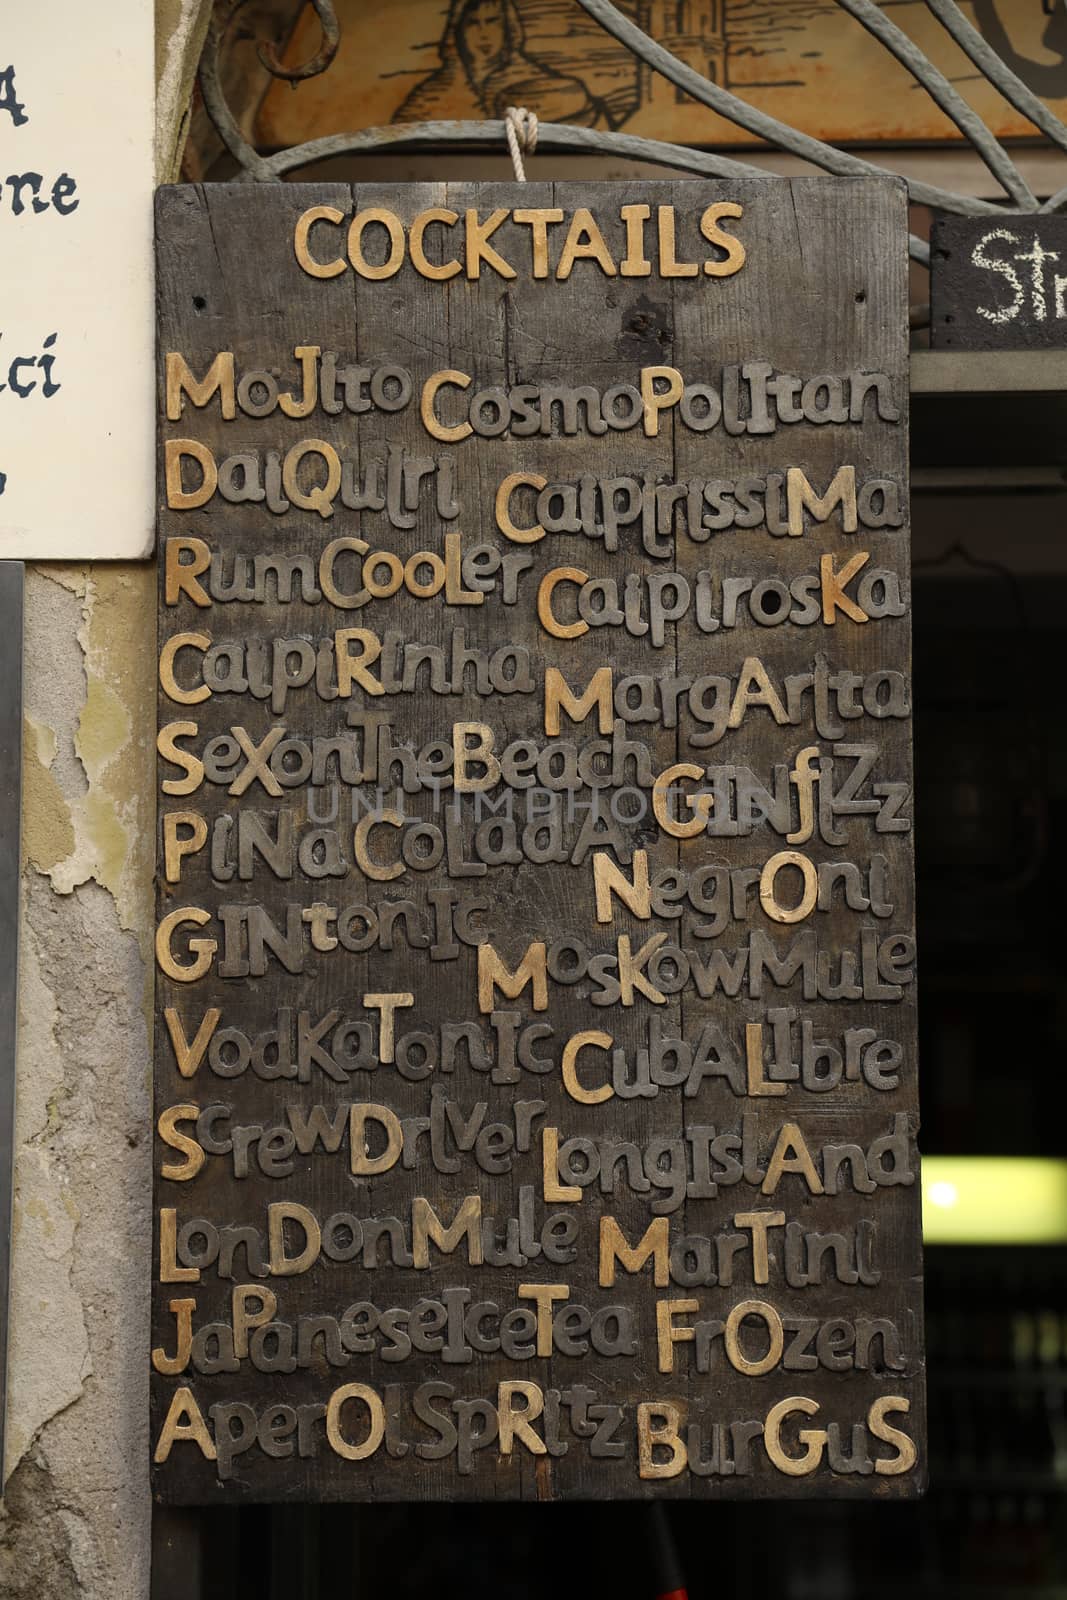 COCKTAILS
MoJIto CosmoPolItan
DaiQuiri CaipirissiMa
RumCooLer CaipirosKa
CaipiRinha MargArita
SeXonTheBeach GINfiZz
PiNaCoLadA NegrOni
GINtonIc MosKowMuLe
VodKaTonIc CubALIbre
ScrewDriver LongIslAnd
LonDonMule MarTini
JaPaneseIceTea FrOzen
AperOlSpRitz BurGuS
Str
A
one
ici
UNLIMPHOTOS